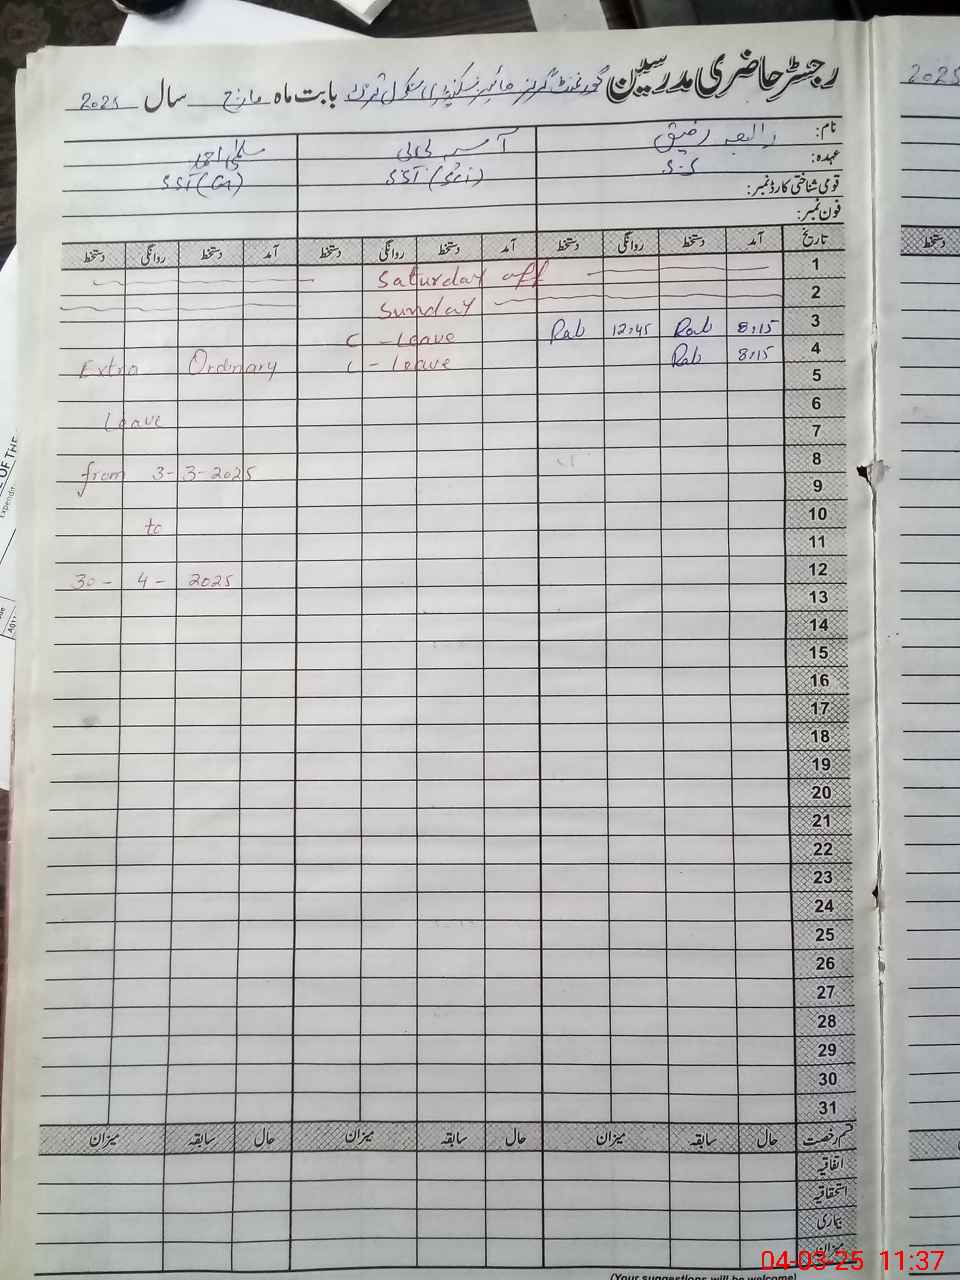 رجسٹر حاضری مدرسین گورنمنٹ گرلز ہائیر سیکنڈری سکول بابت ماہ مارچ سال 2025
2025
نام: رابعہ رفیق آسیہ بی بی سلمیٰ احمد
عہدہ: S.S SST (Sci) SST (G)
قومی شناختی کارڈ نمبر:
فون نمبر:
تاریخ آمد دستخط روانگی دستخط آمد دستخط روانگی دستخط آمد دستخط روانگی دستخط
دستخط
1 Saturday off
2 Sunday
3 8:15 Rab 12:45 Rab C - Leave
4 8:15 Rab C - Leave Extra Ordinary
5
6 Leave
7
8 from 3-3-2025
9
10 to
11
12 30 - 4 - 2025
13
14
15
16
17
18
19
20
21
22
23
24
25
26
27
28
29
30
31
قسم رخصت حال سابقہ میزان حال سابقہ میزان حال سابقہ میزان
اتفاقیہ
استحقاقیہ
بیماری
میزان
(Your suggestions will be welcome)
04-03-25 11:37
E OF THE
Expendit